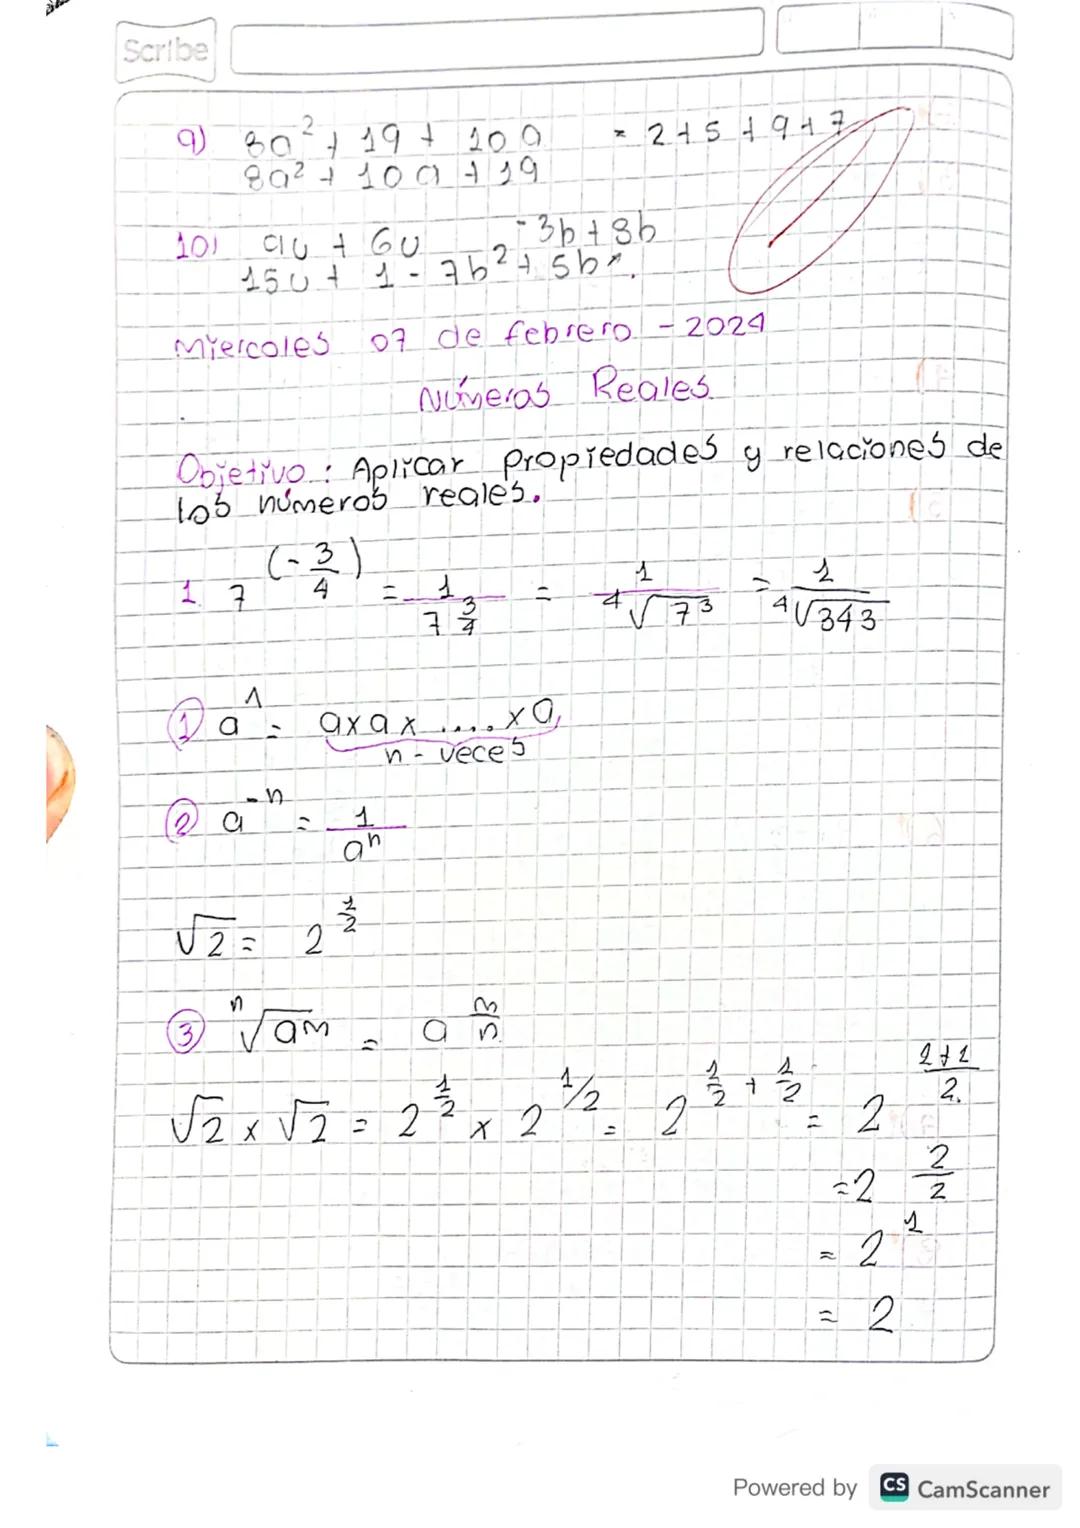 Scribe
9) 8a² + 19 + 10a = 2+5+9+7
8a² + 10a + 19
10) 9u + 6u -3b+8b
15u + 1 - 7b² + 5b
Miercoles 07 de febrero - 2024
Números Reales
Objetivo : Aplicar propiedades y relaciones de
los números reales.
1. 7^(-3/4) = 1/7^(3/4) = 1/⁴√7³ = 1/⁴√343
① aⁿ = a x a x .... x a
n - veces
② a⁻ⁿ = 1/aⁿ
√2 = 2^(1/2)
③ ⁿ√aᵐ = a^(m/n)
√2 x √2 = 2^(1/2) x 2^(1/2) = 2^(1/2 + 1/2) = 2^((1+1)/2)
= 2^(2/2)
= 2¹
= 2
Powered by CS CamScanner